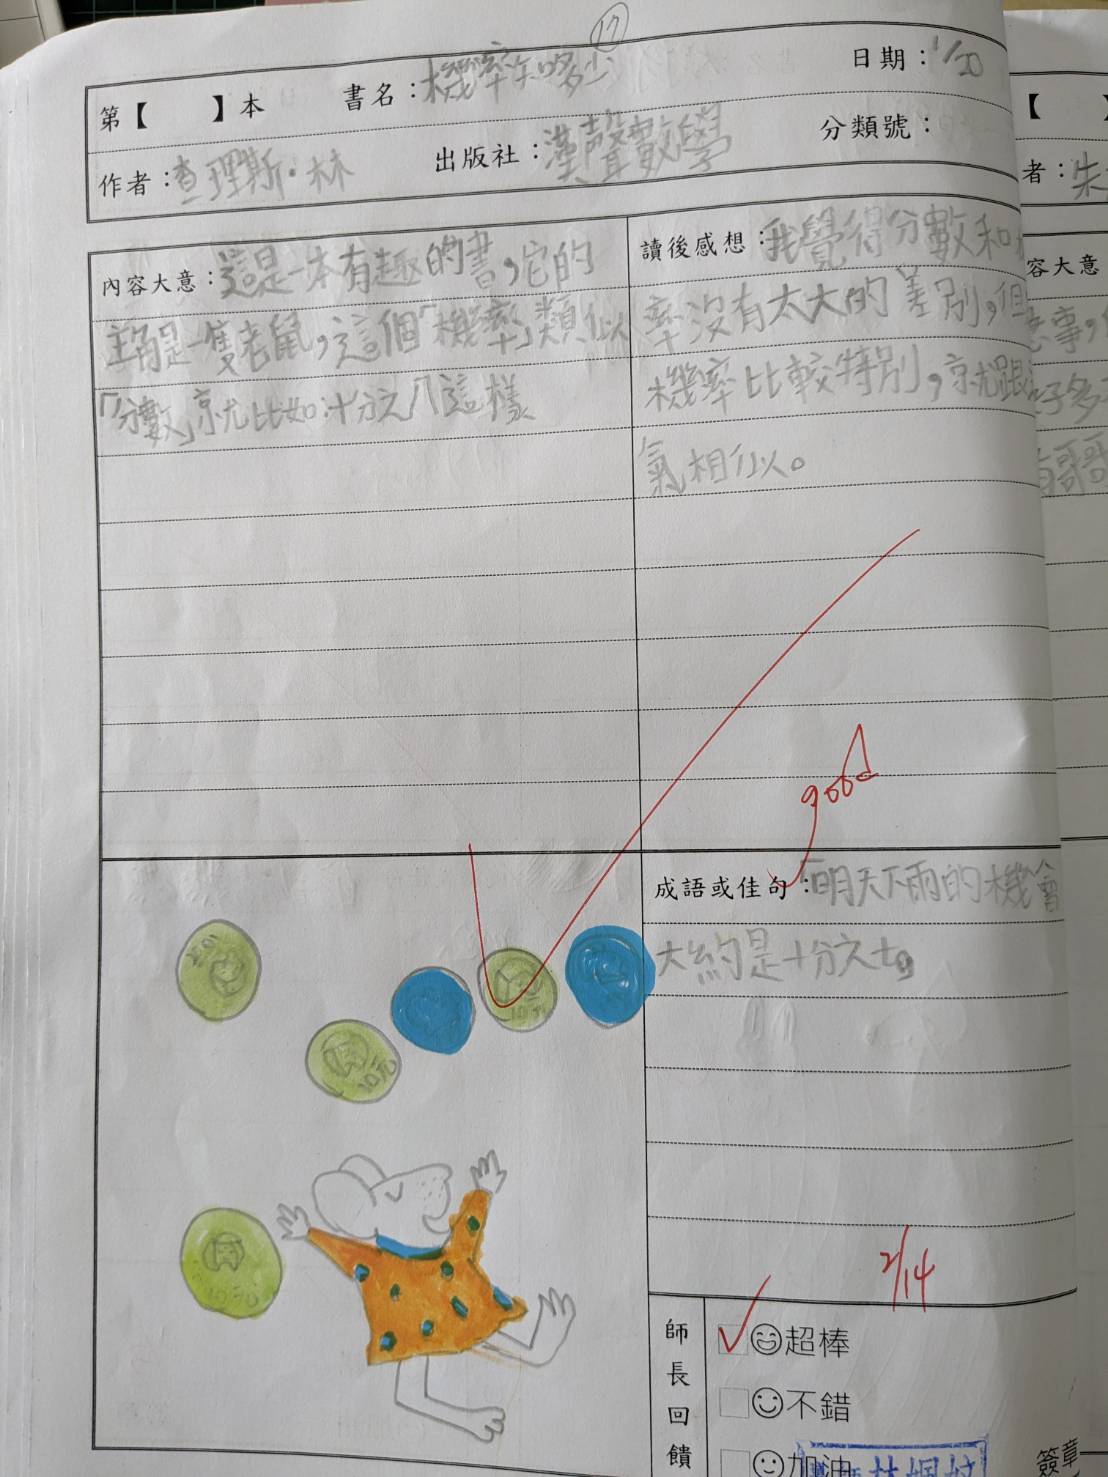 17
第【 】本 書名：機率知多少 日期：1/20
作者：查理斯·林 出版社：漢聲數學 分類號：
內容大意：這是一本有趣的書，它的
主角是一隻老鼠，這個「機率」類似
「分數」就比如十分之八這樣
讀後感想：我覺得分數和
率沒有太大的差別，但
機率比較特別，就跟
氣相似。
good
成語或佳句：「明天下雨的機會
大約是十分之七。
10元
10元
10元
10元
2/14
師長回饋
超棒
不錯
加油
簽章
【
者：朱
容大意
事，
好多
有哥哥